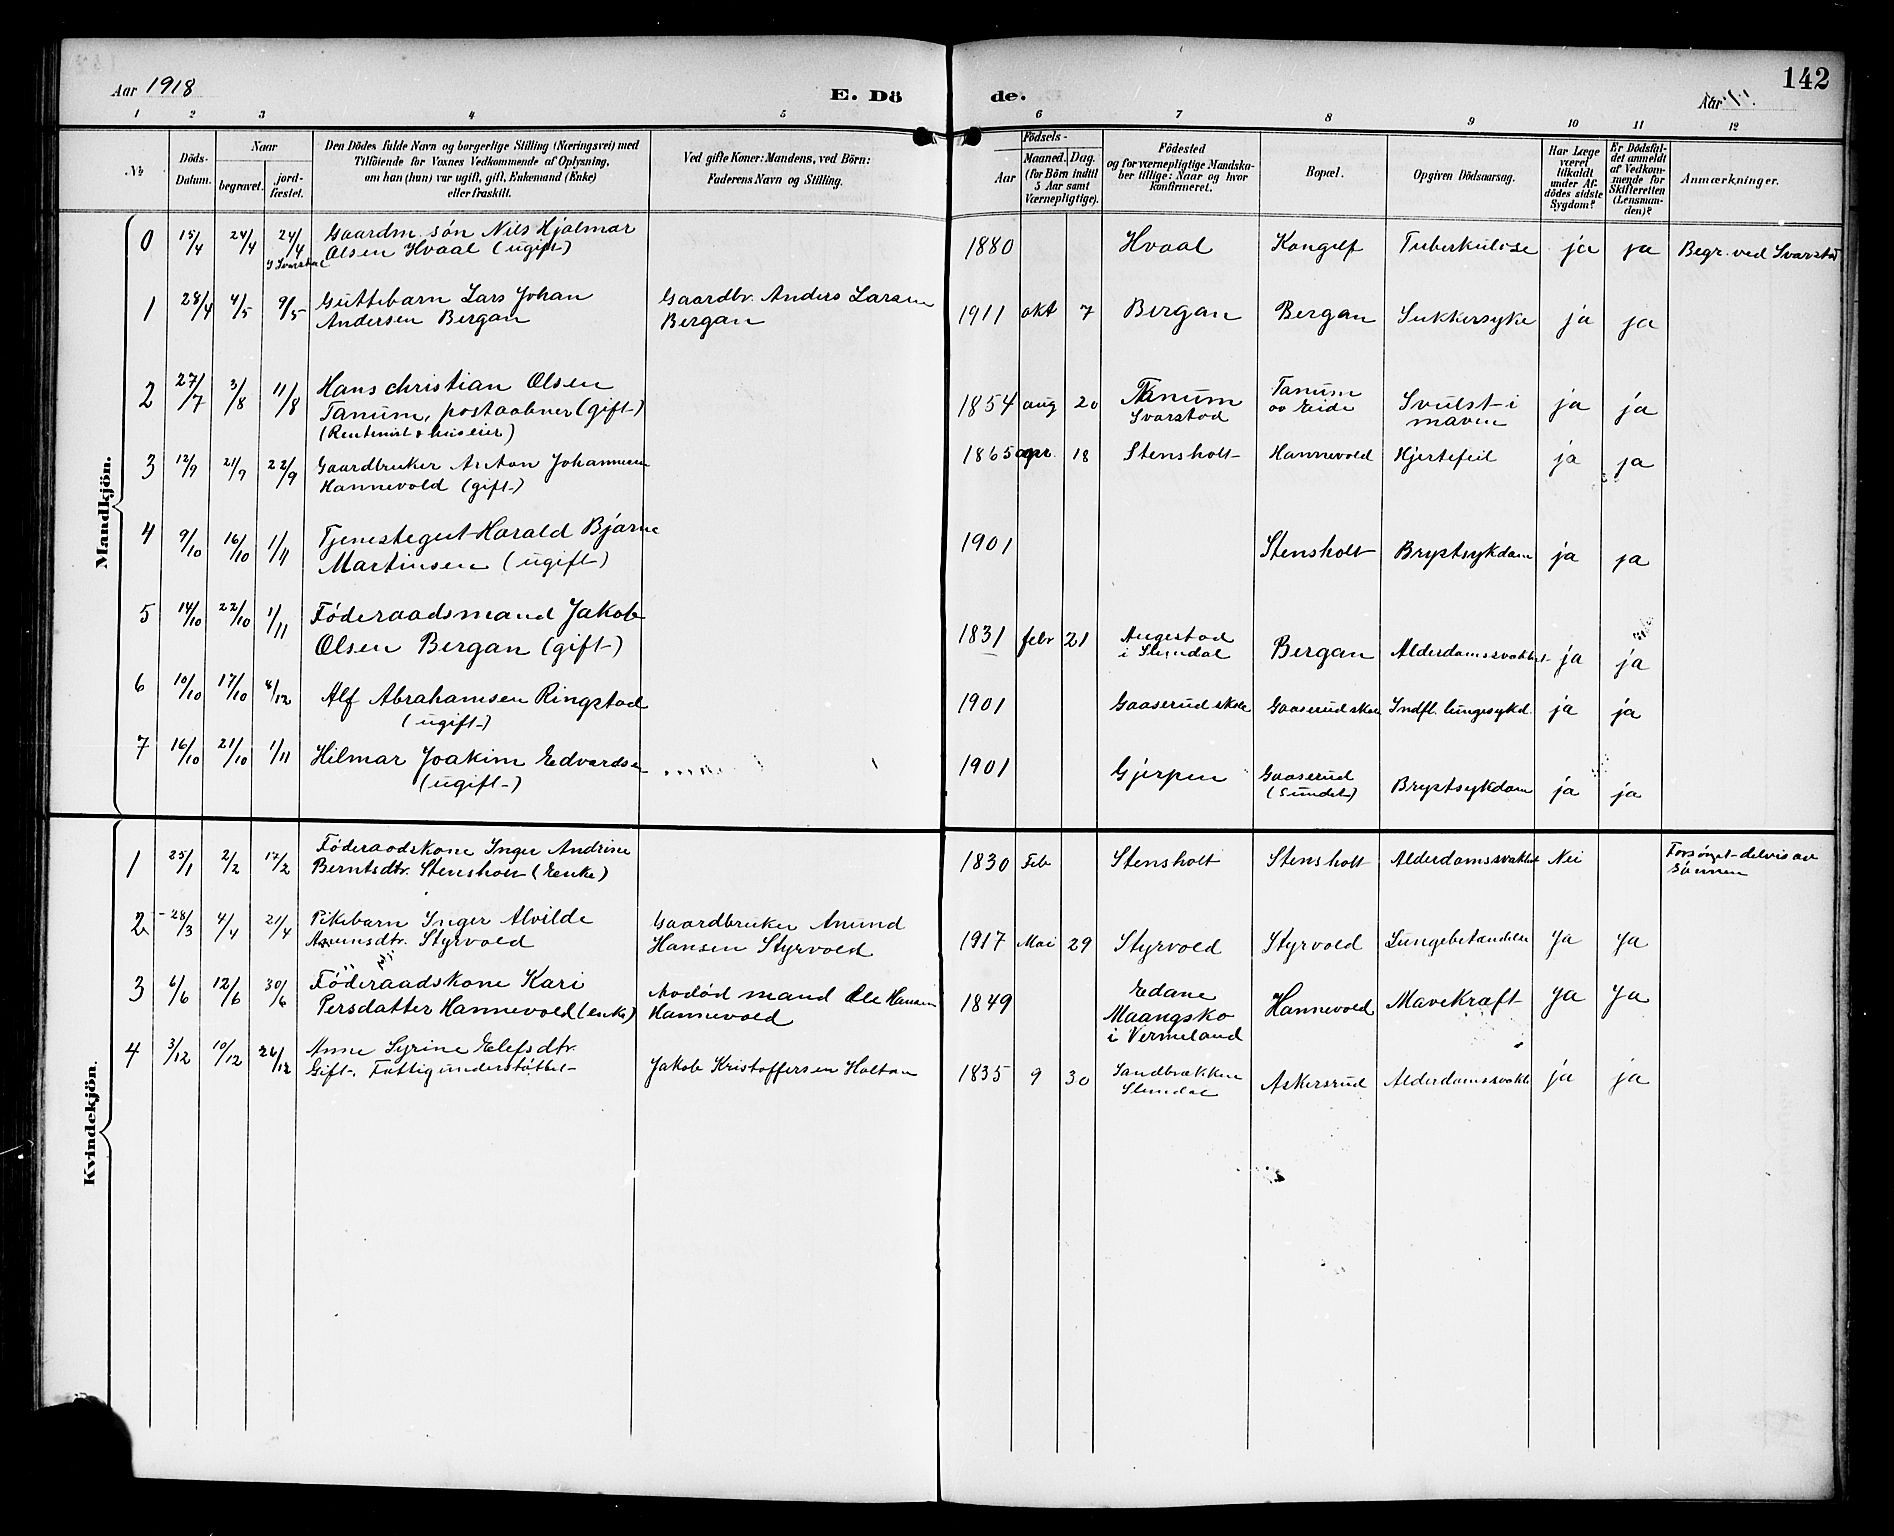 Aar 1918
E. Dö
de.
Aar
142
1 2 3 4 5 6 7 8 9 10 11 12
№
Döds-Datum.
Naar
begravet.
jord-fæstet.
Den Dödes fulde Navn og borgerlige Stilling (Næringsvei) med
Tilföiende for Voxnes Vedkommende af Oplysning,
om han (hun) var ugift, gift, Enkemand (Enke)
eller fraskilt.
Ved gifte Koner: Mandens, ved Börn:
Faderens Navn og Stilling.
Födsels-
Aar
Maaned. Dag.
(for Börn indtil
5 Aar samt
Værnepligtige).
Födested
og for værnepligtige Mandska-
ber tillige: Naar og hvor
konfirmeret.
Bopæl.
Opgiven Dödsaarsag.
Har Læge
været
tilkaldt
under Af-
dödes sidste
Sygdom?
Er Dödsfal-
det anmeldt
af Vedkom-
mende for
Skifteretten
(Lensman-
den)?
Anmærkninger.
Mandkjön.
0 15/4 24/4 24/4 Gaardm. søn Nils Hjalmar
Olsen Hvaal (ugift) 1880 Hvaal Kongelf Tuberkulose ja ja Begr. ved Svarstad
1 28/4 4/5 9/5 Guttebarn Lars Johan Gaardbr. Anders Larsen
Andersen Bergan Bergan 1911 okt 7 Bergan Bergan Sukkersyke ja ja
2 27/7 3/8 11/8 Hans christian Olsen
Tanum, postaabner (gift) 1854 aug 20 Tanum Svarstad Tanum og Eide Svulst i maven ja ja
(Rentenist & huseier)
3 12/9 21/9 22/9 Gaardbruker Anton Johannesen
Hannevold (gift) 1865 apr. 18 Stensholt Hannevold Hjertefeil ja ja
4 9/10 16/10 1/11 Tjenestegut Harald Bjarne
Martinsen (ugift) 1901 Stensholt Brystsykdam ja ja
5 14/10 22/10 1/11 Föderaadsmand Jakob
Olsen Bergan (gift) 1831 febr 21 Augestad i Slemdal Bergan Alderdomssvakhet ja ja
6 10/10 17/10 8/12 Alf Abrahamsen Ringstad
(ugift) 1901 Gaaserud skole Gaaserud skole Indfl. lungesykd. ja ja
7 16/10 21/10 1/11 Hilmar Joakim Edvardsen
(ugift) 1901 Gjerpen Gaaserud (Sundet) Brystsykdom ja ja
Kvindekjön.
1 25/1 2/2 17/2 Föderaadskone Inger Andrine
Berntsdtr. Stensholt (Enke) 1830 Feb Stensholt Stensholt Alderdomssvakhet Nei Forsørget delvis av sønnen
2 28/3 4/4 21/4 Pikebarn Inger Alvilde Gaardbruker Anund
Styrvold Hansen Styrvold 1917 Mai 29 Styrvold Styrvold Lungebetændelse Ja Ja
3 6/6 12/6 30/6 Föderaadskone Kari
Persdatter Hannevold (enke) Avdød mand Ole Hansen Hannevold 1849 Edane Maangsko i Vermeland Hannevold Mavekræft Ja Ja
4 3/12 10/12 26/12 Anne Syrine Elefsdtr.
Gift. Fattigunderstöttet Jakob Kristoffersen Holtan 1835 9 30 Sandbrækken Slemdal Askersrud Alderdomssvakhet ja ja